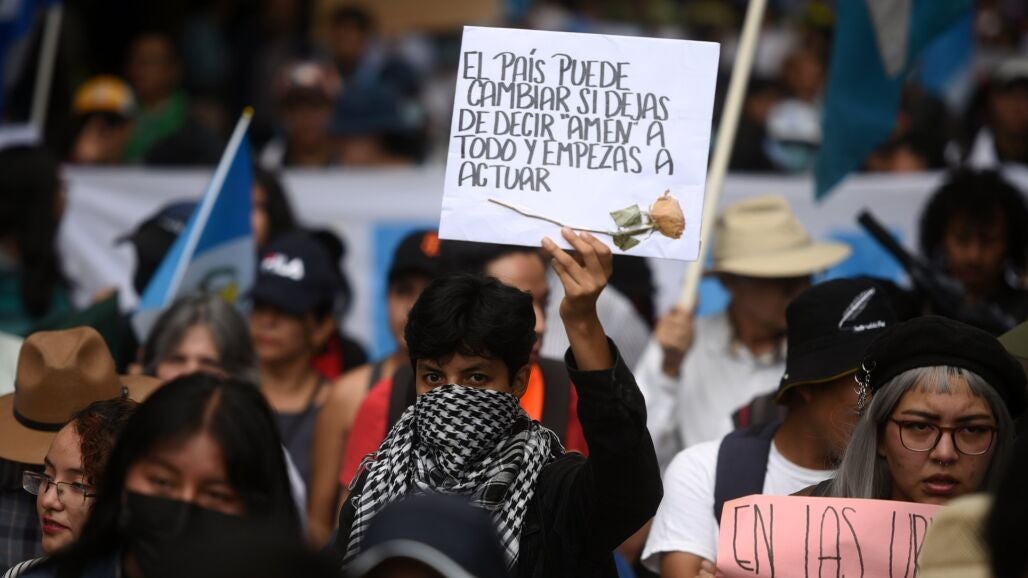 EL PAÍS PUEDE
CAMBIAR SI DEJAS
DE DECIR "AMEN" A
TODO Y EMPEZAS A
ACTUAR
FILA
EN LAS